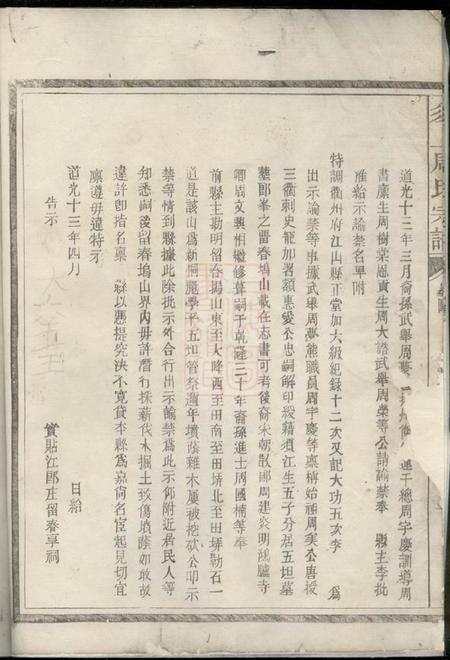 周氏宗譜
道光十三年三月裔孫武舉周夢 運千總周宇慶訓導周
書廩生周樹棠恩貢生周大諮武舉周榮等公請諭禁奉 縣主李批
准給示諭禁名單附
特調衢州府江山縣正堂加六級紀錄十二次又記大功五次李 為
出示諭禁等事據武舉周夢熊職員周宇慶等稟稱始祖周美公唐授
三衢刺史寵加署額惠愛公忠嗣解印綬籍須江生五子分居五坦墓
塟郎峯之留春塢山載在志書可考後裔宋朝散郎周建炎明鴻臚寺
卿周文興相繼修葺嗣于乾隆三十年裔孫進士周國楠等奉
前縣主勘明留春塢山東至大降西至田南至田塝北至田塝勒石一
道是該山為新祠鳳學平五坦管祭週年墳蔭雜木屢被挖砍公叩示
禁等情到縣據此除批示外合行出示諭禁為此示仰附近居民人等
知悉嗣後留春塢山界內毋許潛行採薪伐木掘土致傷墳蔭如敢故
違許即指名稟 縣以憑提究決不寬貸本縣為嘉尚名宦起見切宜
凛遵毋違特示
道光十三年四月 日給
告示 實貼江郎庄留春享祠